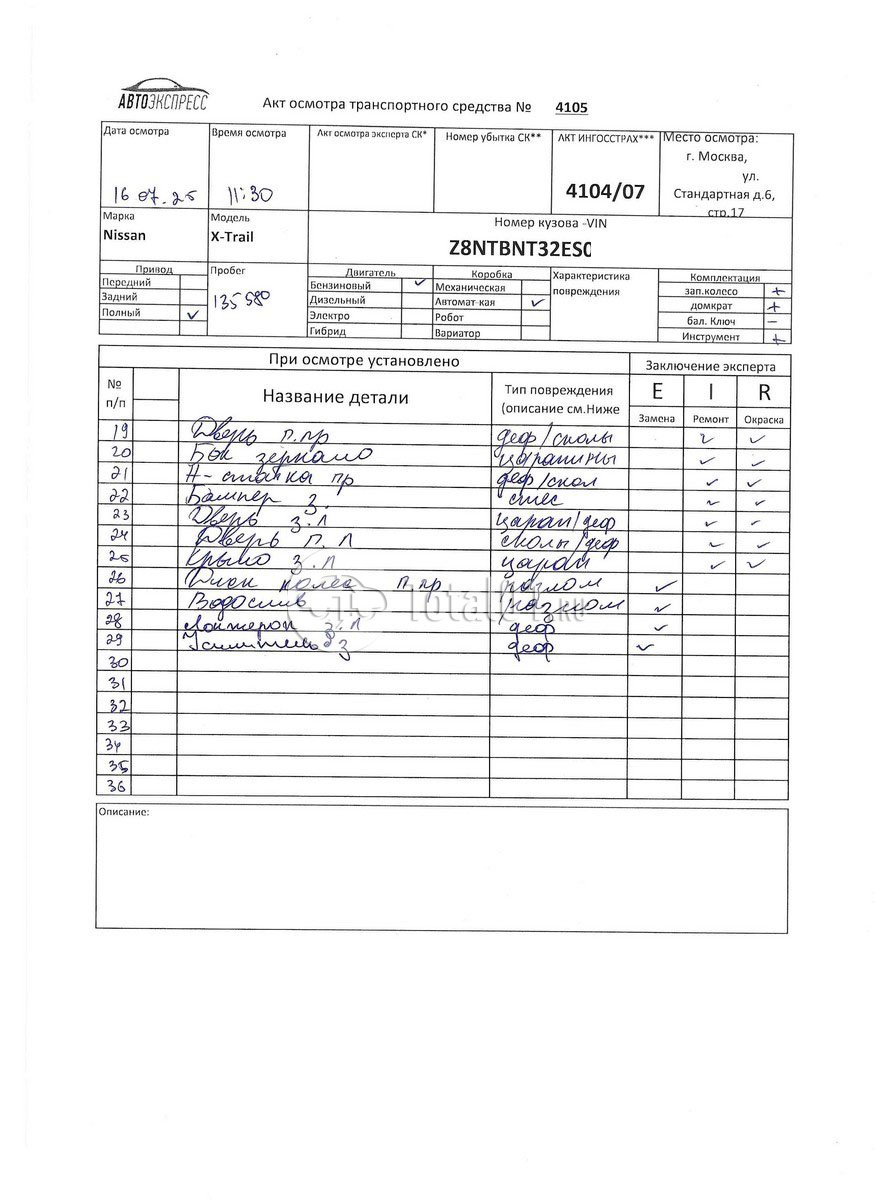 АВТОЭКСПРЕСС
Акт осмотра транспортного средства № 4105
Дата осмотра
Время осмотра
Акт осмотра эксперта СК*
Номер убытка СК**
АКТ ИНГОССТРАХ***
Место осмотра:
г. Москва,
ул.
Стандартная д.6,
стр.17
16 07.25
11:30
4104/07
Марка
Модель
Номер кузова -VIN
Nissan
X-Trail
Z8NTBNT32ES0
Привод
Передний
Задний
Полный ✓
Пробег
135580
Двигатель
Бензиновый ✓
Дизельный
Электро
Гибрид
Коробка
Механическая
Автомат-кая ✓
Робот
Вариатор
Характеристика
повреждения
Комплектация
зап.колесо +
домкрат +
бал. Ключ –
Инструмент +
При осмотре установлено
Заключение эксперта
№
п/п
Название детали
Тип повреждения
(описание см.Ниже
E I R
Замена Ремонт Окраска
19 Дверь п.пр деф/сколы ✓ ✓
20 Бок зеркало царапины ✓ ✓
21 А-стойка пр деф/скол ✓ ✓
22 Бампер з. ✓ ✓
23 Дверь з.л царап/деф ✓ ✓
24 Дверь п.л сколы/деф ✓ ✓
25 Крыло з.л царап ✓ ✓
26 Диск колеса п.пр разлом ✓
27 Водослив разлом ✓
28 з.л деф ✓
29 Усилитель з деф ✓
30
31
32
33
34
35
36
Описание:
Total01.RU